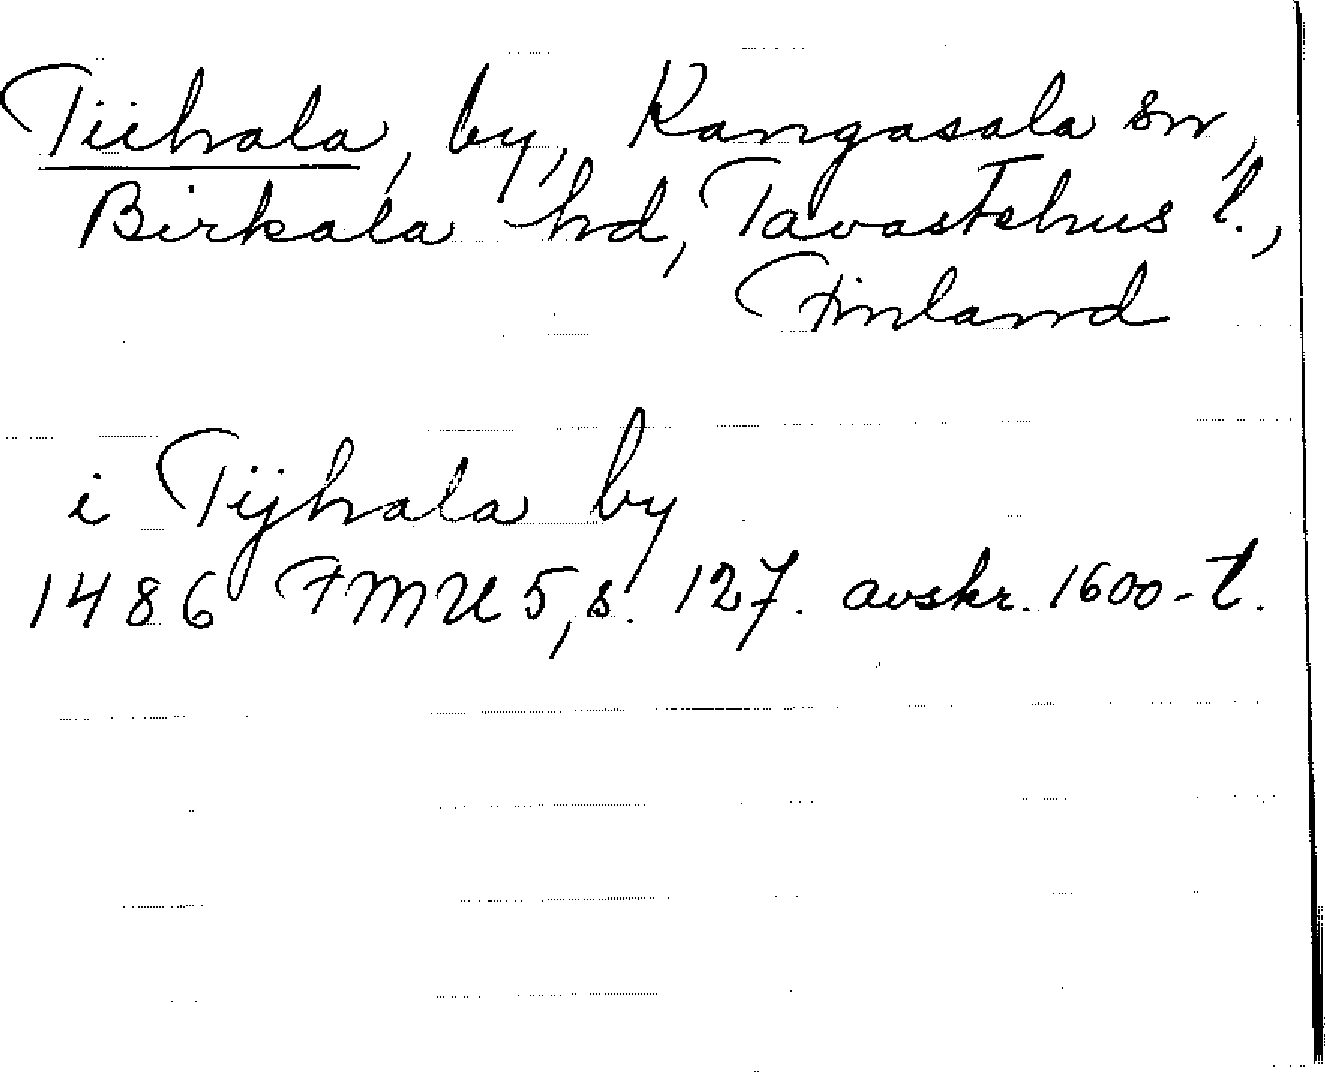 Tiihala, by, Kangasala sn,
Birkala hd, Tavastehus l.,
Finland
i Tijhala by
1486 FMU 5, s. 127. avskr. 1600-t.